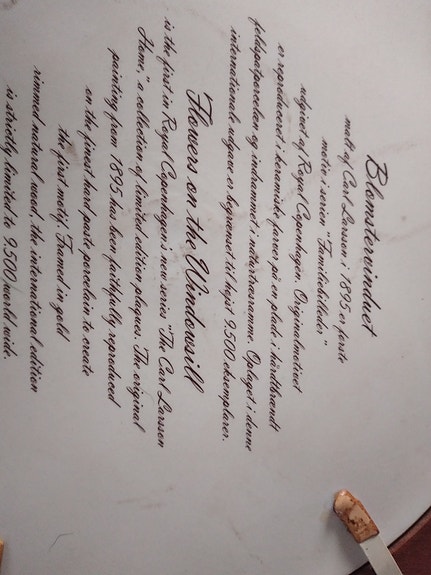 Blomstervinduet
malt af Carl Larsson i 1895 er første
motiv i serien "Familiebilleder"
udgivet af Royal Copenhagen. Originalmotivet
er reproduceret i keramiske farver på en plade i hårdtbrandt
feldspatporcelæn og indrammet i naturtræsramme. Oplaget i denne
internationale udgave er begrænset til højst 9.500 eksemplarer.
Flowers on the Windowsill
is the first in Royal Copenhagen's new series "The Carl Larsson
Home," a collection of limited edition plaques. The original
painting from 1895 has been faithfully reproduced
on the finest hard paste porcelain to create
the first motif. Framed in gold
rimmed natural wood, the international edition
is strictly limited to 9.500 world wide.